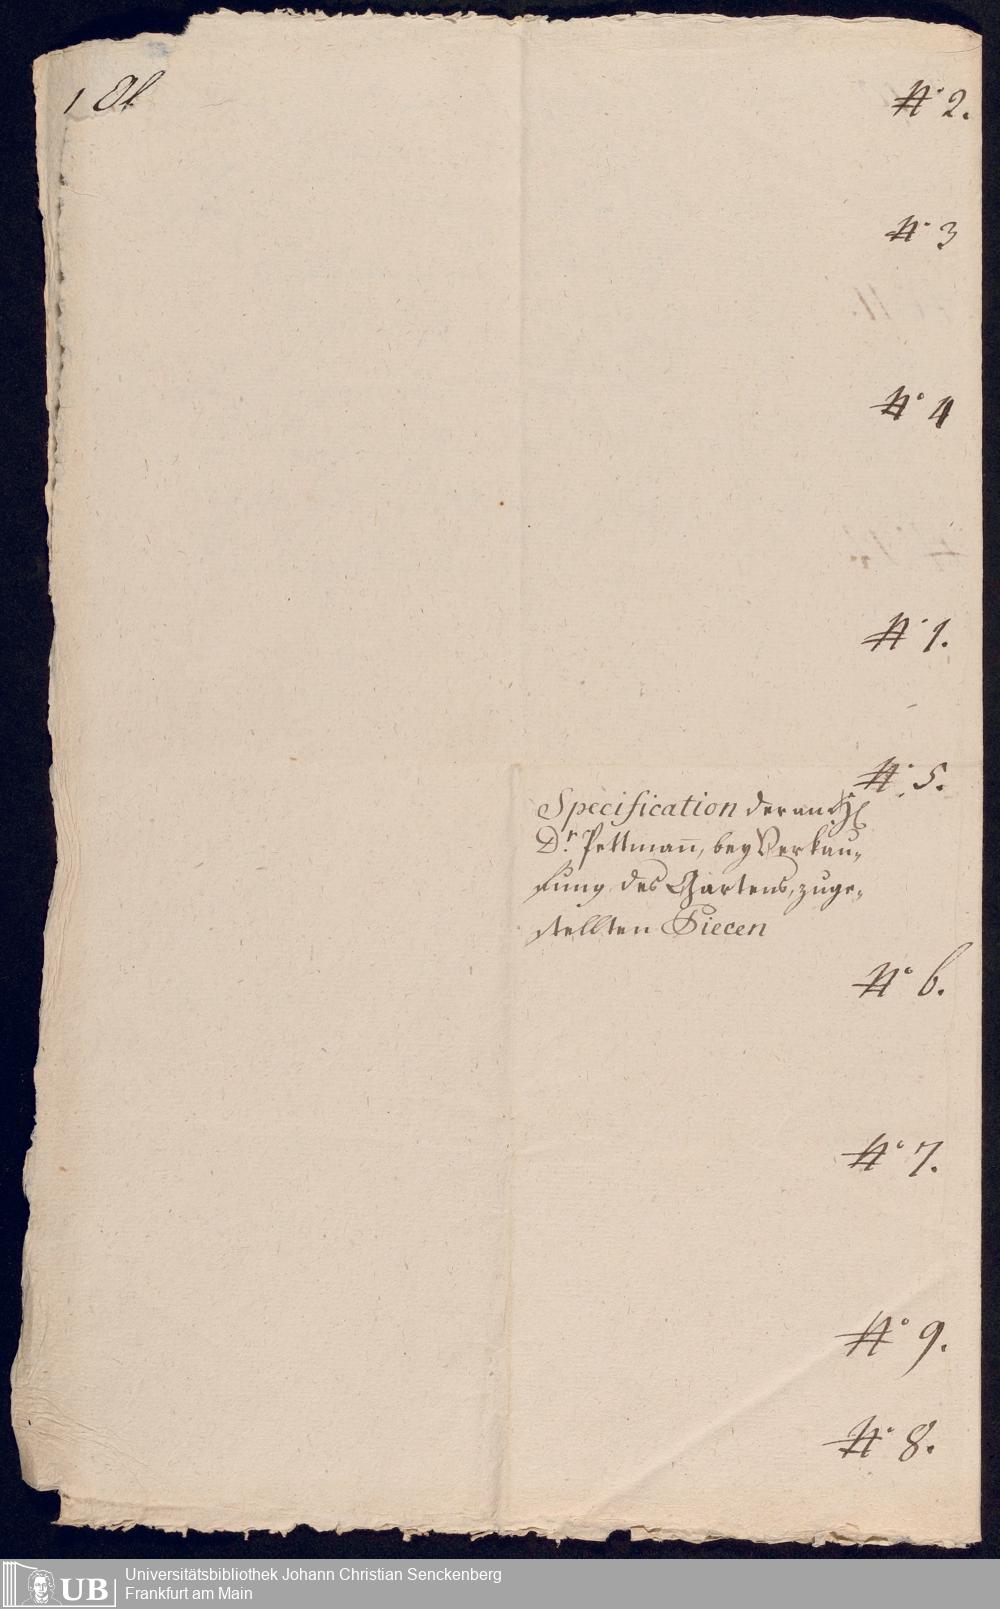 No 2.
No 3
No 4
No 1.
No 5.
Specification der an H
Dr Pettmann, bey Verkau-
fung des Gartens, zuge-
stellten Piecen
No 6.
No 7.
No 9.
No 8.
UB
Universitätsbibliothek Johann Christian Senckenberg
Frankfurt am Main